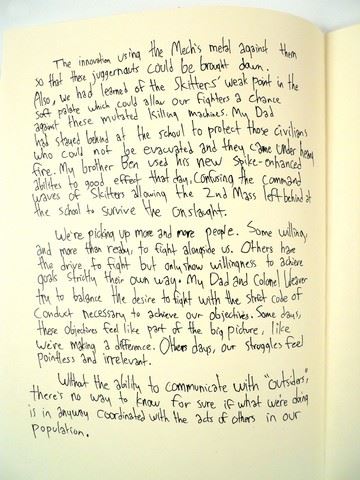 The innovation using the Mech's metal against them
so that these juggernauts could be brought down.
Also, we had learned of the Skitters' weak point in the
soft palate which could allow our fighters a chance
against these mutated killing machines. My Dad
had stayed behind at the school to protect those civilians
who could not be evacuated and they came under heavy
fire. My brother Ben used his new spike-enhanced
abilities to good effect that day. Confusing the command
waves of Skitters allowing the 2nd Mass left behind at
the school to survive the onslaught.
We're picking up more and more people. Some willing,
and more than ready, to fight alongside us. Others have
the drive to fight but only show willingness to achieve
goals strictly their own way. My Dad and Colonel Weaver
try to balance the desire to fight with the strict code of
conduct necessary to achieve our objectives. Some days,
these objectives feel like part of the big picture, like
we're making a difference. Others days, our struggles feel
pointless and irrelevant.
Without the ability to communicate with "outsiders",
there's no way to know for sure if what we're doing
is in anyway coordinated with the acts of others in our
population.